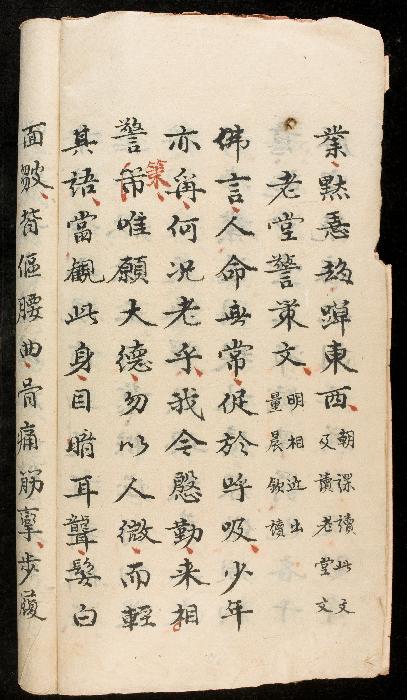 業黙東西朝課讀此文又讀老堂文
老堂警策文明相近出量晨讀
佛言人命無常促於呼吸少年
亦稱何况老乎我今慇勤来相
警策唯願大德勿以人微而輕
其語當觀此身目暗耳聾髮白
面皺背傴腰曲骨痛筋步履